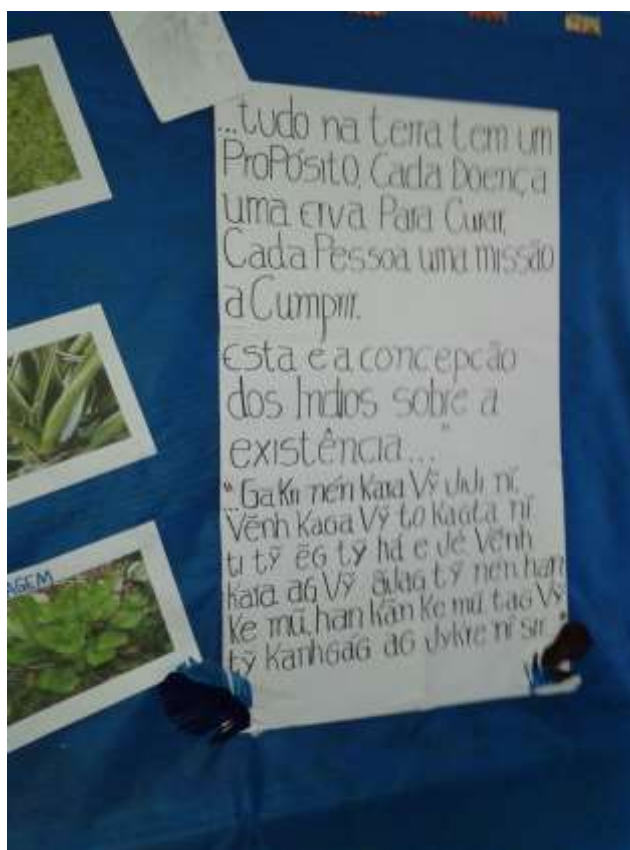 ...tudo na terra tem um
ProPósito, Cada Doença
uma erva Para Curar,
Cada Pessoa uma missão
a Cumprir.
Esta é a concepção
dos Indios sobre a
existência..."
"...Ga Ki nén Kara Vỹ JiJi ní,
Vẽnh Kaga Vỹ to Kagta ní
ti tỹ ẽg tỹ há e Jé Vẽnh
Kara ag Vỹ ag tỹ nén han
Ke mũ, han Kãn Ke mũ tag Vỹ
tỹ Kanhgág ag Jykre ní sir..."
AGEM